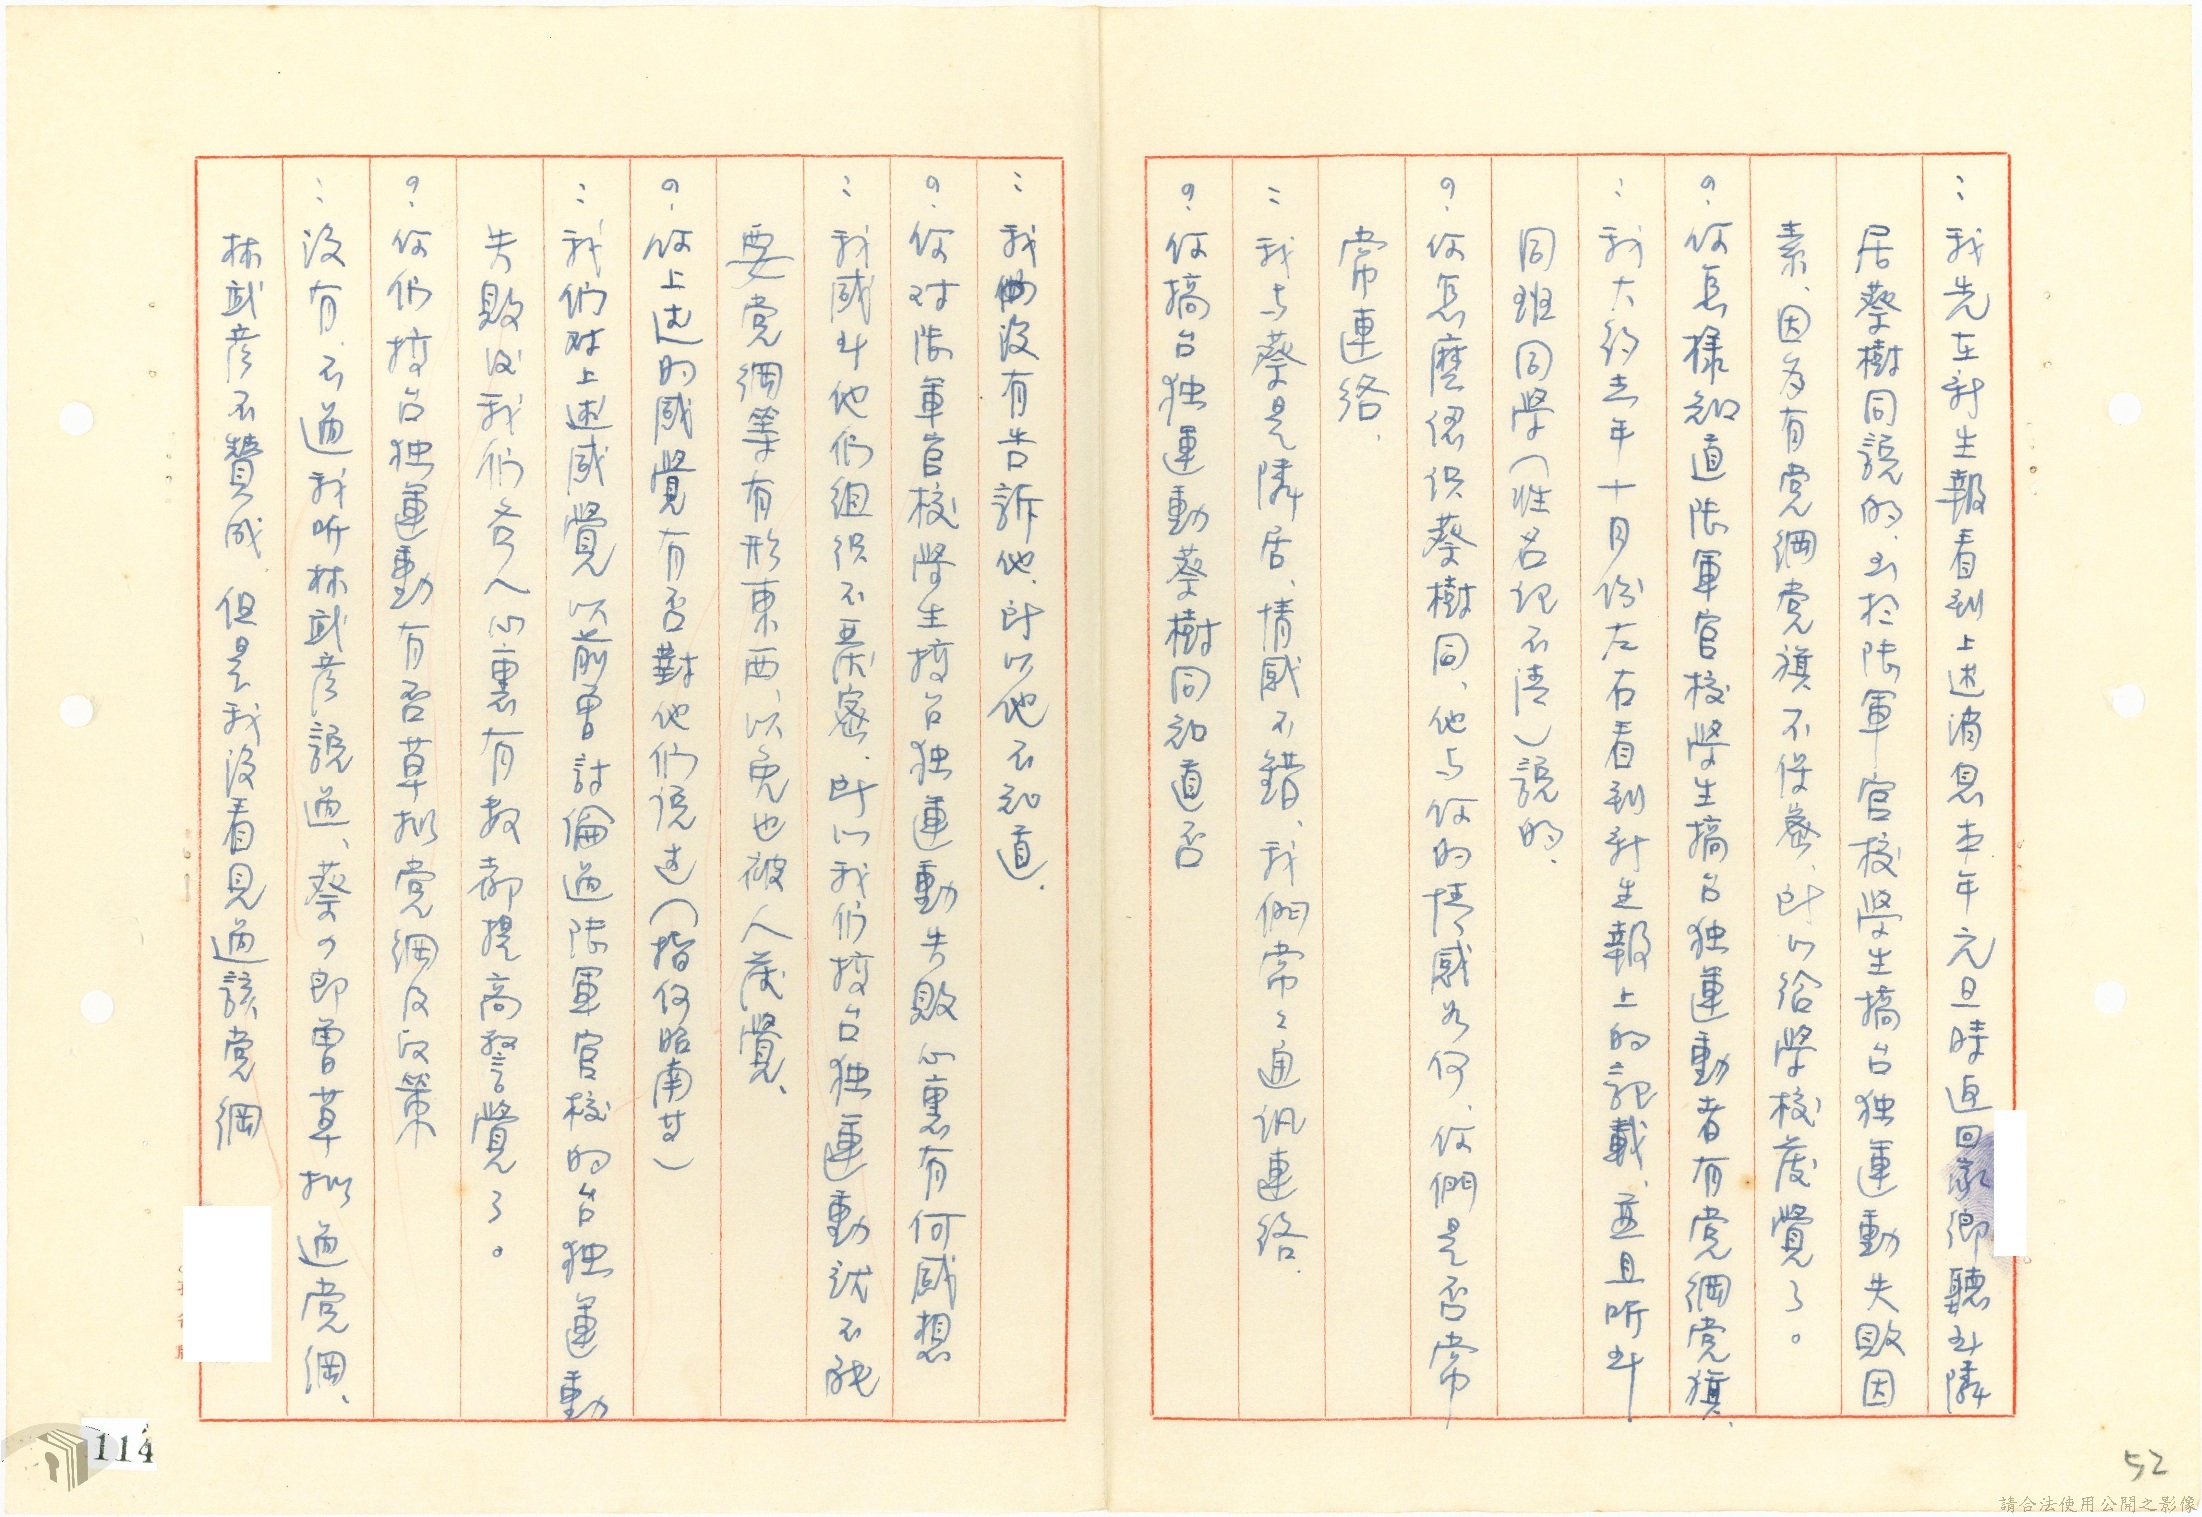 ：我先在新生報看到上述消息本年元旦時返回家鄉聽到隣
居蔡樹同說的、至於陸軍官校學生搞台独運動失敗因
素、因为有党綱党旗不保密、所以給學校发覺了。
？你怎樣知道陸軍官校學生搞台独運動者有党綱党旗、
：我大約去年十月份左右看到新生報上的記載、並且听到
同班同學（姓名记不清）說的、
？你怎麼認识蔡樹同、他与你的情感为何、你們是否常
常連絡、
：我与蔡是隣居、情感不錯、我們常々通讯連絡、
？你搞台独運動蔡樹同知道否
：我没有告訴他、所以他不知道、
？你对陸軍官校學生搞台独運動失敗心裏有何感想
：我感到他们组织不严密、所以我们搞台独運動就不能
要党綱等有形東西、以免也被人发覺、
？你上述的感覺有否對他们说过（指何昭南廿）
：我们对上述感覺以前曾討倫過陸軍官校的台独運動
失敗后我们各人心裏有数都提高警覺了。
？你们搞台独運動有否草拟党綱及政策
：没有、不過我听林武彥說過、蔡 曾草拟過党綱、
林武彥不贊成、但是我没看見過該党綱
114
52
請合法使用公開之影像